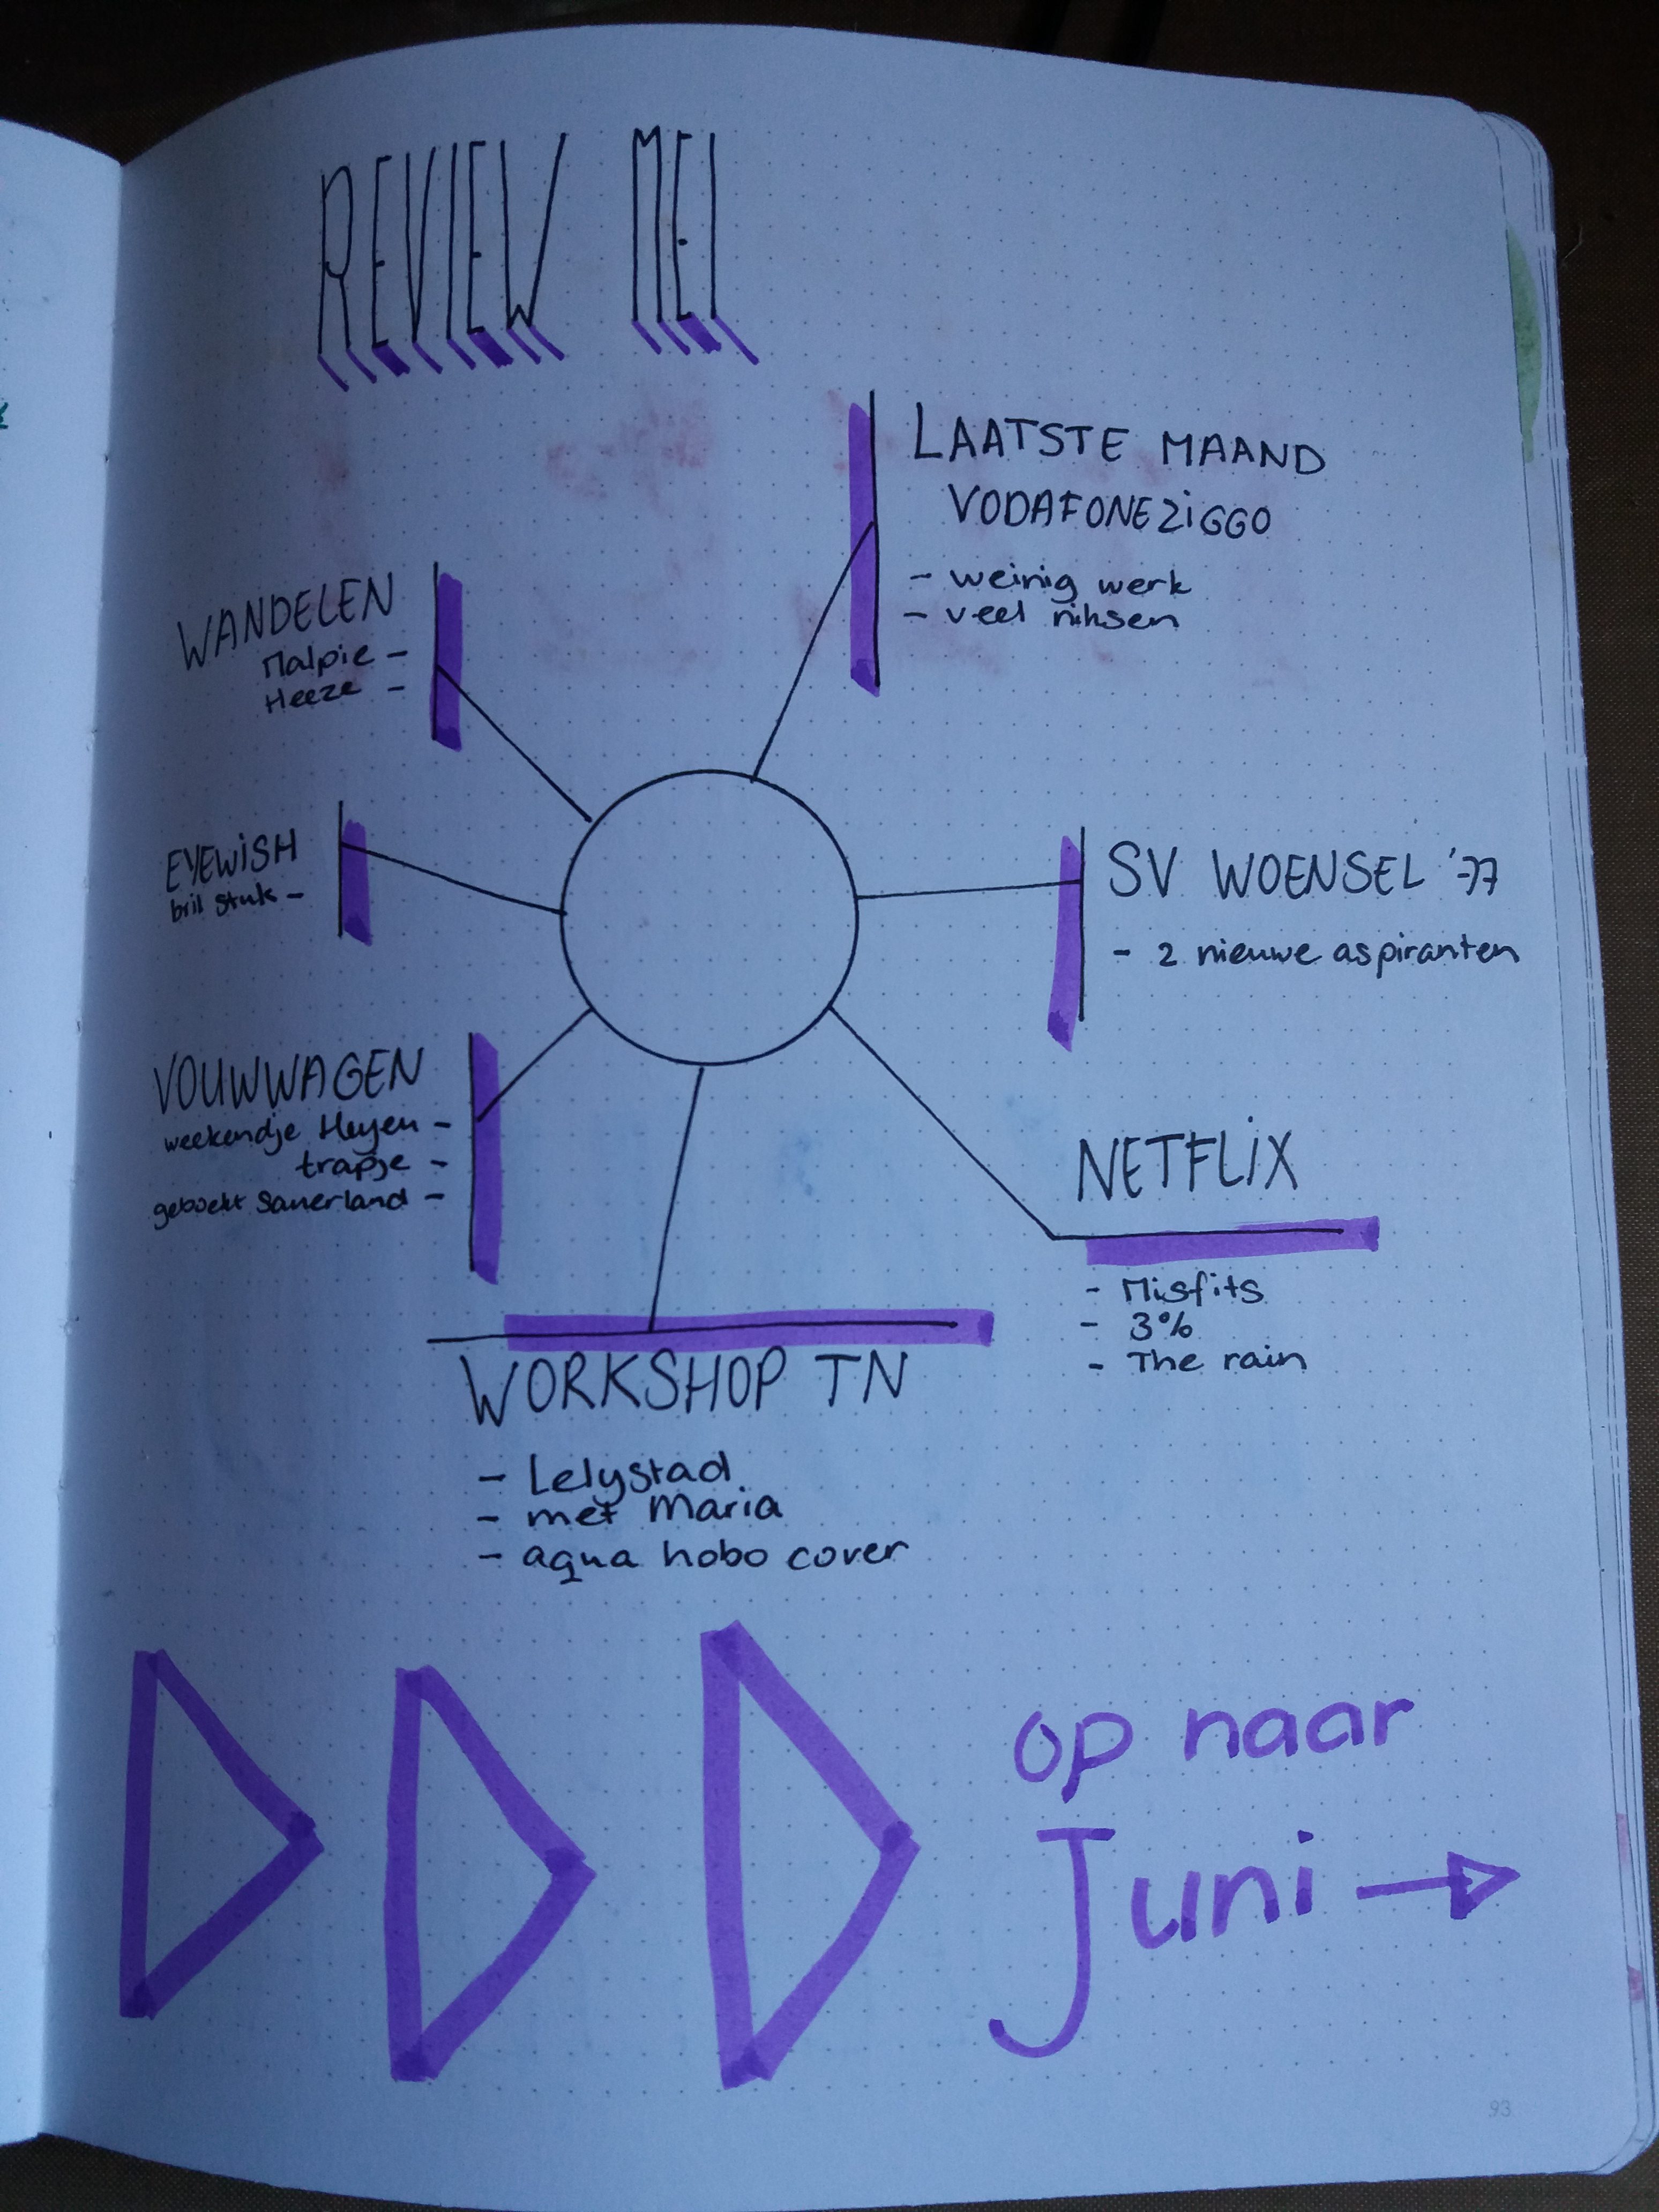 REVIEW MEI
LAATSTE MAAND
VODAFONEZIGGO
- weinig werk
- veel niksen
WANDELEN
Malpie -
Heeze -
EYEWISH
bril stuk -
SV WOENSEL '77
- 2 nieuwe aspiranten
VOUWWAGEN
weekendje Heyen -
trapje -
geboekt Sauerland -
NETFLIX
- Misfits
- 3%
- The rain
WORKSHOP TN
- Lelystad
- met Maria
- aqua hobo cover
op naar
Juni
93